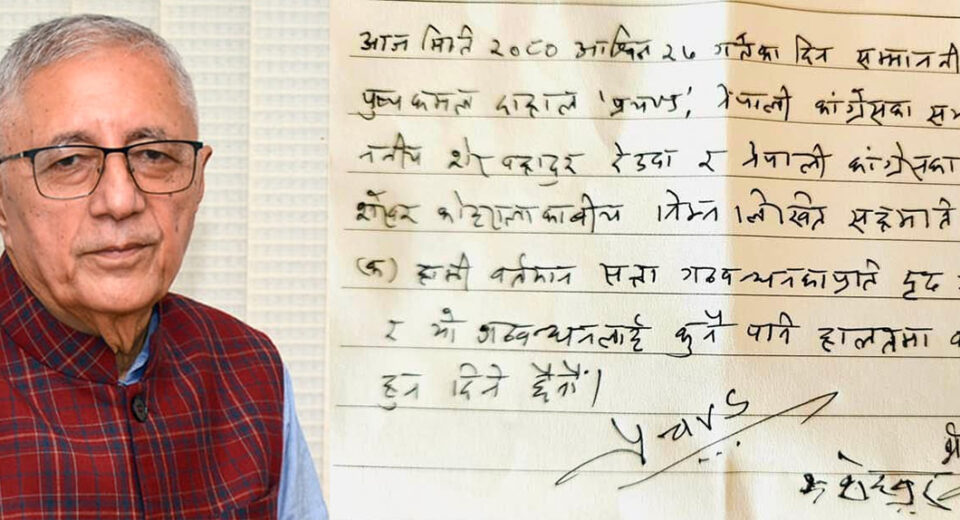 आज मिति २०८० आश्विन २७ गतेका दिन सम्माननी
पुष्पकमल दाहाल 'प्रचण्ड', नेपाली कांग्रेसका सभ
ननीय शेरबहादुर देउवा र नेपाली कांग्रेसका
शेखर कोइरालाकाबीच निम्न लिखित सहमति
(क) हामी वर्तमान सत्ता गठबन्धनकाप्रति दृढ
र यो गठबन्धनलाई कुनै पनि हालतमा
हुन दिने छैनौं।